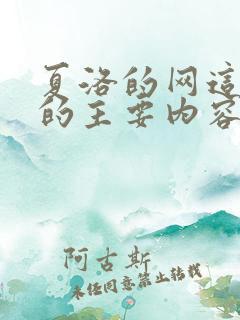 夏洛的网這
的主要内容
阿古斯
未经同意禁止转载